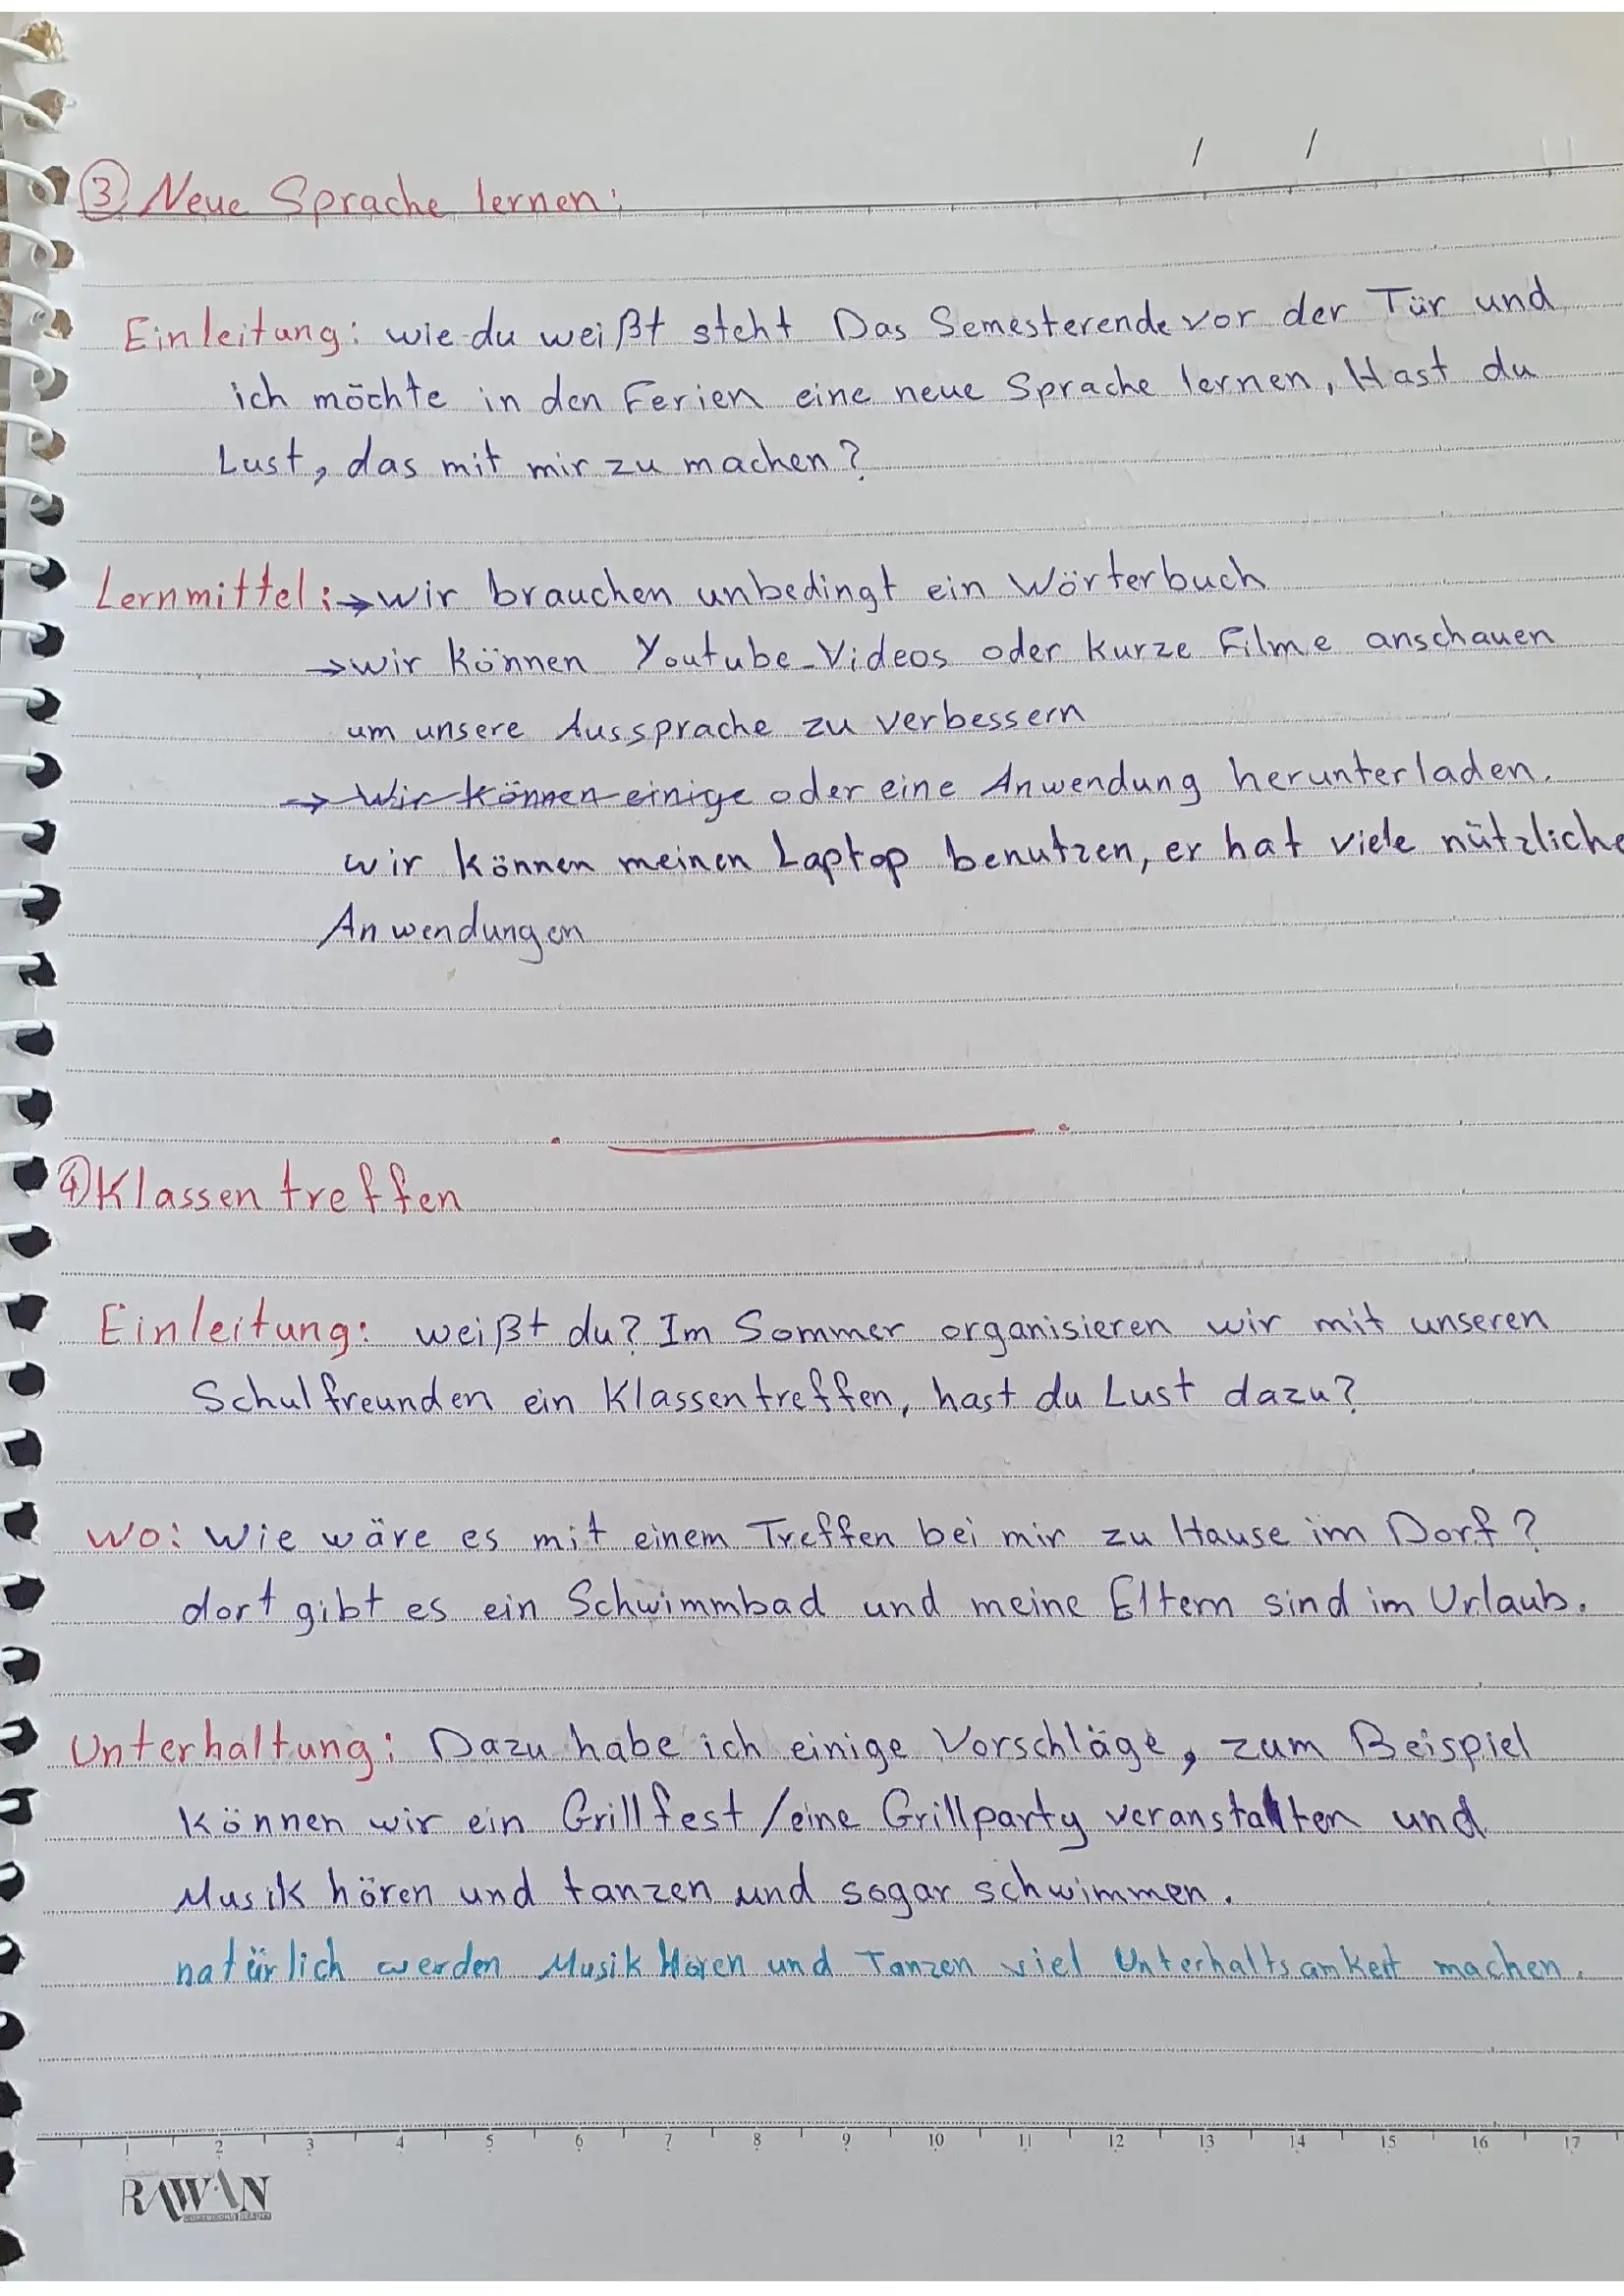 / /
③ Neue Sprache lernen:
Einleitung: wie du weißt steht Das Semesterende vor der Tür und
ich möchte in den Ferien eine neue Sprache lernen, Hast du
Lust, das mit mir zu machen?
Lernmittel: → wir brauchen unbedingt ein Wörterbuch
→ wir können Youtube-Videos oder kurze Filme anschauen
um unsere Aussprache zu verbessern
→ Wir können einige oder eine Anwendung herunterladen.
wir können meinen Laptop benutzen, er hat viele nützliche
Anwendungen
④ Klassentreffen
Einleitung: weißt du? Im Sommer organisieren wir mit unseren
Schulfreunden ein Klassentreffen, hast du Lust dazu?
Wo: Wie wäre es mit einem Treffen bei mir zu Hause im Dorf?
dort gibt es ein Schwimmbad und meine Eltern sind im Urlaub.
Unterhaltung: Dazu habe ich einige Vorschläge, zum Beispiel
können wir ein Grillfest / eine Grillparty veranstalten und
Musik hören und tanzen und sogar schwimmen.
natürlich werden Musik Hören und Tanzen viel Unterhaltsamkeit machen.
1 2 3 4 5 6 7 8 9 10 11 12 13 14 15 16 17
RAWAN